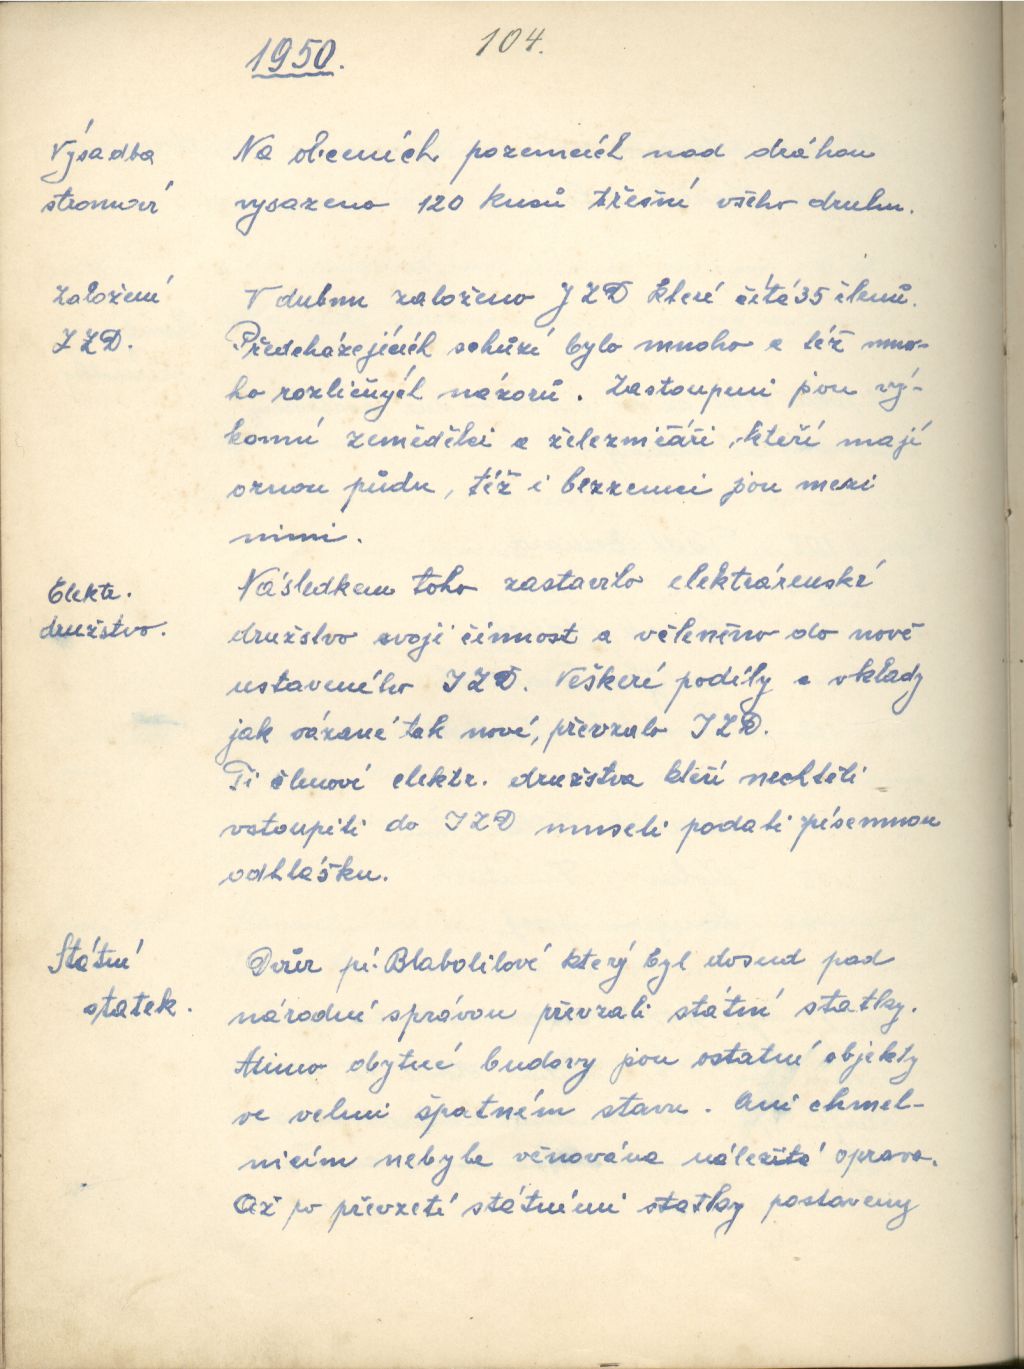 1950.
104.
Výsadba
stromoví
Na obecních pozemcích nad dráhou
vysazeno 120 kusů třešní všeho druhu.
Založení
JZD.
V dubnu založeno JZD které čítá 35 členů.
Předcházejících schůzí bylo mnoho a též mno-
ho rozličných názorů. Zastoupeni jsou vý-
konní zemědělci a železničáři, kteří mají
ornou půdu, též i bezzemci jsou mezi
nimi.
Elektr.
družstvo.
Následkem toho zastavilo elektrárenské
družstvo svoji činnost a včleněno do nově
ustaveného JZD. Veškeré podíly a vklady
jak vázané tak nové, převzalo JZD.
Ti členové elektr. družstva kteří nechtěli
vstoupiti do JZD museli podati písemnou
odhlášku.
Státní
statek.
Dvůr pí. Blabolilové který byl dosud pod
národní správou převzali státní statky.
Mimo obytné budovy jsou ostatní objekty
ve velmi špatném stavu. Ani chmel-
nicím nebyla věnována náležitá oprava.
Až po převzetí státními statky postaveny